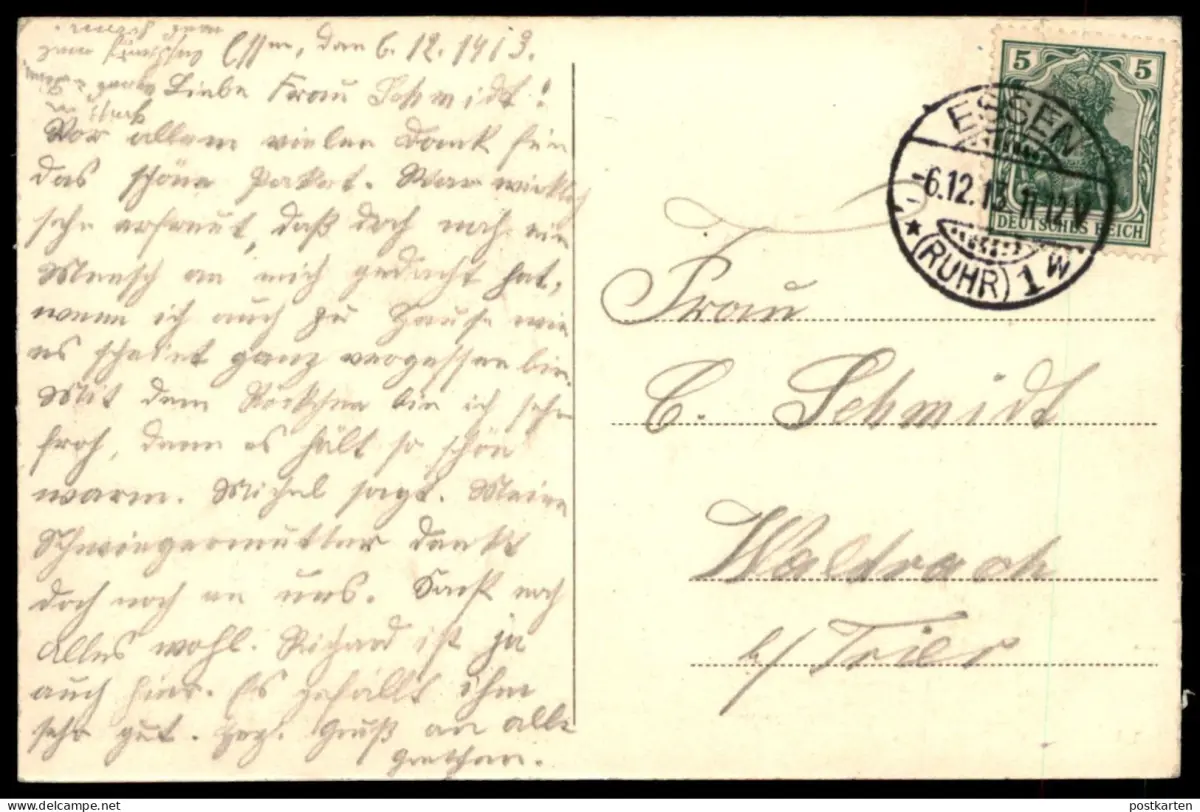 Essen, den 6. 12. 1913.
Liebe Frau Schmidt!
Vor allem vielen Dank für
das schöne Paket. War wirklich
sehr erfreut, daß doch noch ein
Mensch an mich gedacht hat,
wenn ich auch zu Hause wie
es scheint ganz vergessen bin.
Mit dem Röckchen bin ich sehr
froh, denn es hält so schön
warm. Michel sagt. Meine
Schwiegermutter denkt
doch noch an uns. Sonst noch
alles wohl. Richard ist ja
auch hier. Es gefällt ihm
sehr gut. Hrzl. Gruß an alle
Gretchen.
5 5
DEUTSCHES REICH
ESSEN
-6.12.13. 11-12 V
* (RUHR) 1 W
Frau
C. Schmidt
Waldrach
b/ Trier
postkarten